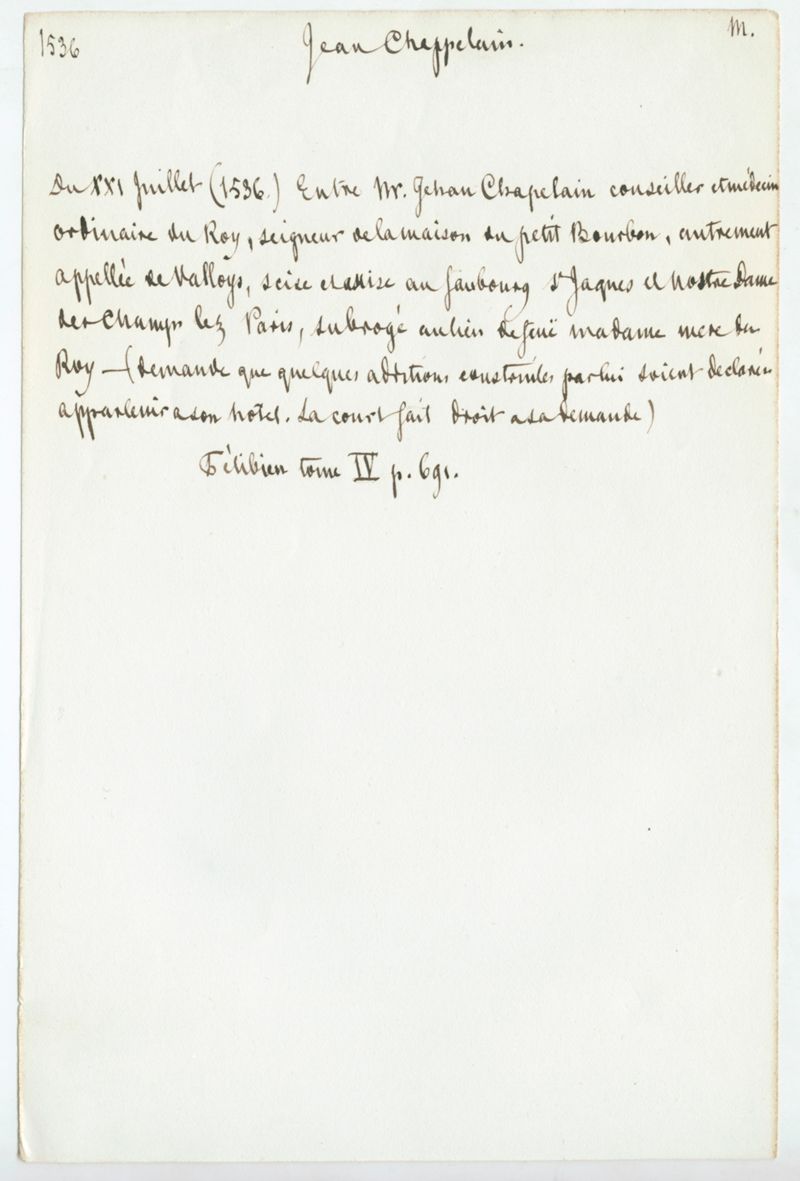 1536 Jean Chappelain. M.
Du XXI Juillet (1536.) Entre Mr. Jehan Chapelain conseiller et médecin
ordinaire du Roy, seigneur de la maison du petit Bourbon, autrement
appellée de Valloys, scise et assise au faubourg St Jaques et Nostre Dame
des Champs lez Paris, subrogé au lieu de feuë madame mere du
Roy — (demande que quelques additions construites par lui soient declarées
appartenir a son hotel. La court fait droit a sa demande)
Félibien tome IV p. 691.